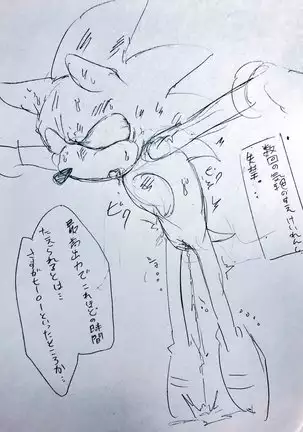 数回の絶頂の末けいれんし
失禁…
ビク
ビク
最高出力でこれほどの時間
たえられるとは…
さすがヒーローといったところか…